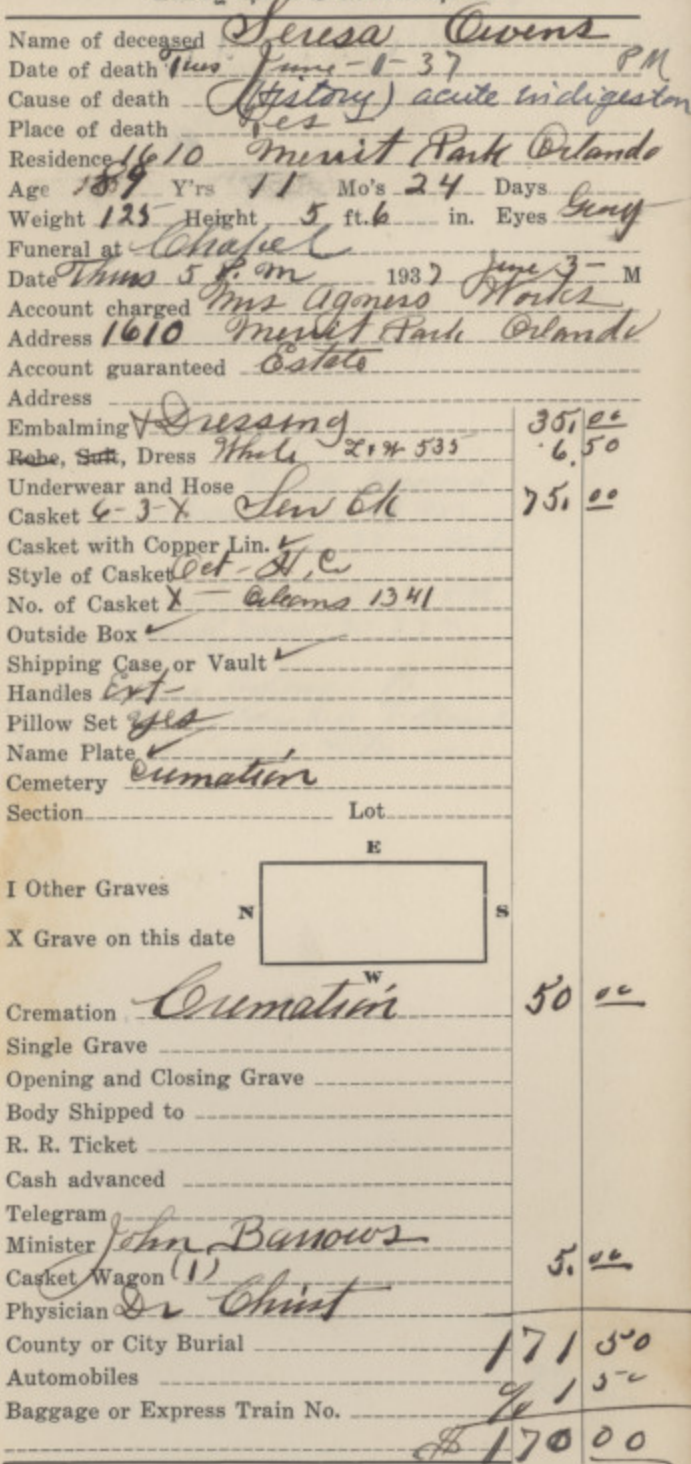 Name of deceased Teresa Owens
Date of death Tues June-1-37 PM
Cause of death (History) acute indigeston
Place of death Res
Residence 1610 Merrit Park Orlando
Age 89 Y'rs 11 Mo's 24 Days
Weight 125 Height 5 ft. 6 in. Eyes Grey
Funeral at Chapel
Date Thurs 5 P.m 1937 June 3- M
Account charged Mrs Agness Works
Address 1610 Merrit Park Orlando
Account guaranteed Estate
Address
Embalming & Dressing 35.00
Robe, Suit, Dress 535 6.50
Underwear and Hose
Casket 6-3-X 75.00
Casket with Copper Lin. ✓
Style of Casket Oct-
No. of Casket X - Orleans 1341
Outside Box ✓
Shipping Case or Vault ✓
Handles Ext-
Pillow Set yes
Name Plate ✓
Cemetery Cremation
Section Lot
E
I Other Graves
N S
X Grave on this date
W
Cremation Cremation 50 00
Single Grave
Opening and Closing Grave
Body Shipped to
R. R. Ticket
Cash advanced
Telegram
Minister John Barrows
Casket Wagon (1) 5.00
Physician Dr Christ
County or City Burial 171 50
Automobiles 1 50
Baggage or Express Train No.
$ 170 00